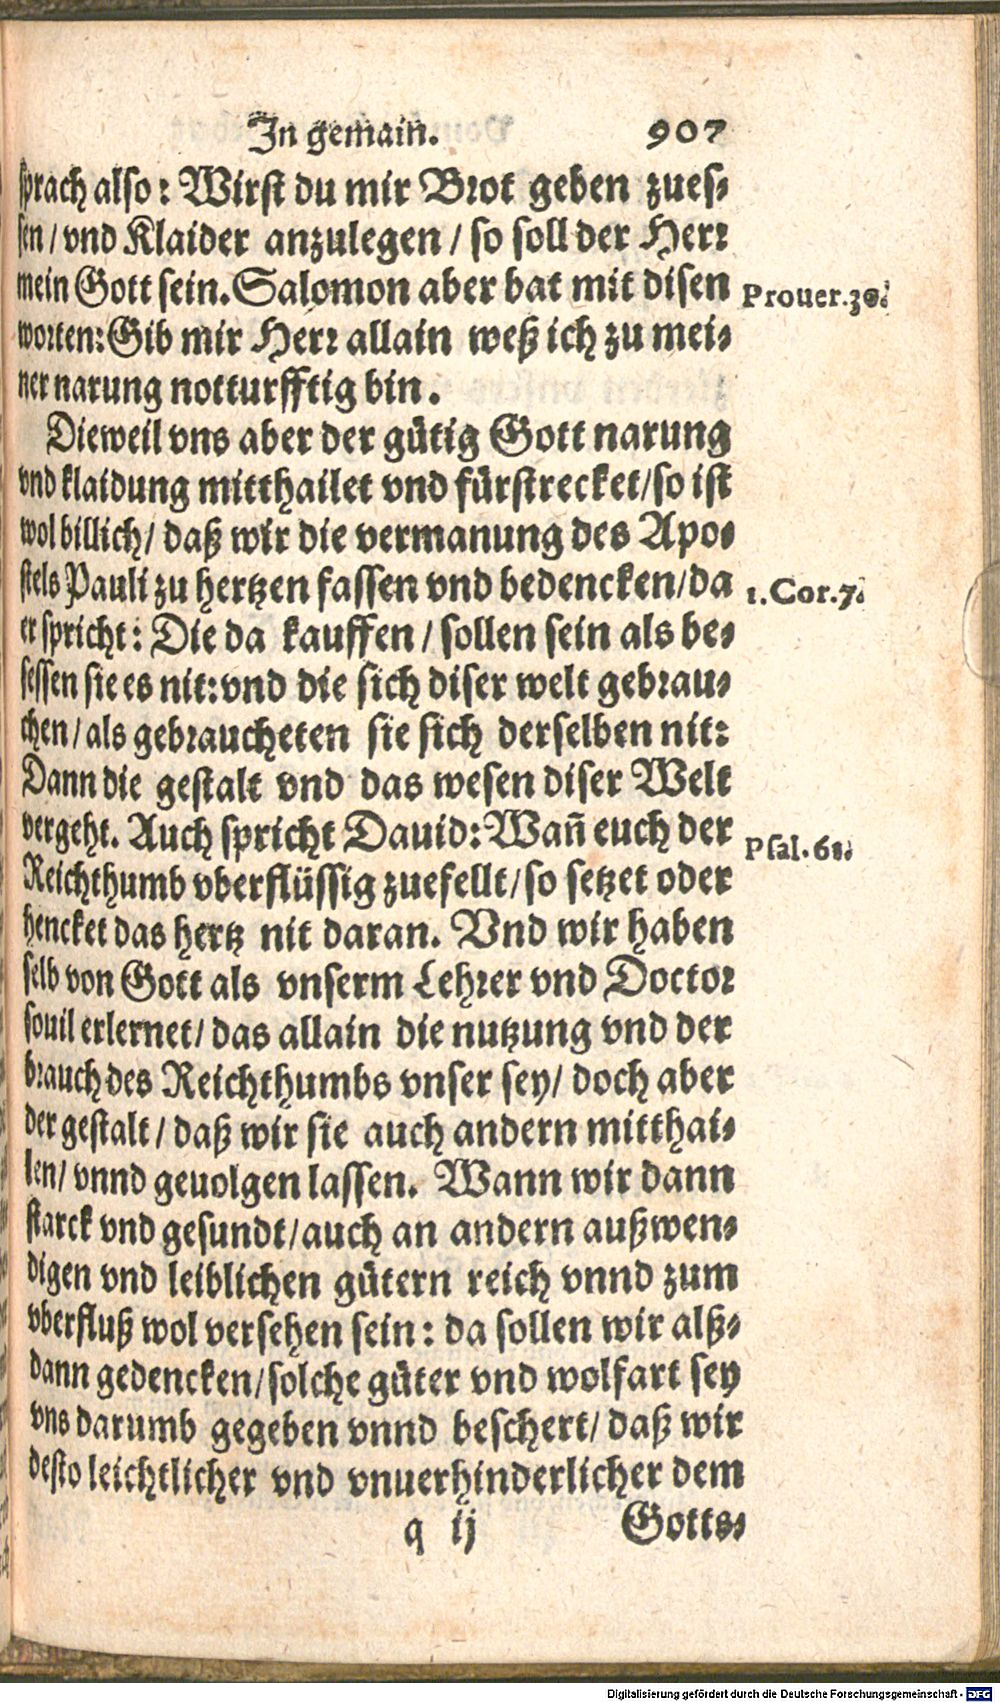 In gemain. 907
sprach also: Wirst du mir Brot geben zues⸗
sen / vnd Klaider anzulegen / so soll der Herr
mein Gott sein. Salomon aber bat mit disen
Prouer.30.
worten: Gib mir Herr allain weß ich zu mei⸗
ner narung notturfftig bin.
Dieweil vns aber der gütig Gott narung
vnd klaidung mitthailet vnd fürstrecket / so ist
wol billich / daß wir die vermanung des Apo⸗
stels Pauli zu hertzen fassen vnd bedencken / da
1. Cor.7.
er spricht: Die da kauffen / sollen sein als be⸗
sessen sie es nit: vnd die sich diser welt gebrau⸗
chen / als gebraucheten sie sich derselben nit:
Dann die gestalt vnd das wesen diser Welt
vergeht. Auch spricht Dauid: Wañ euch der
Psal.61.
Reichthumb vberflüssig zuefellt / so setzet oder
hencket das hertz nit daran. Vnd wir haben
selb von Gott als vnserm Lehrer vnd Doctor
souil erlernet / das allain die nutzung vnd der
brauch des Reichthumbs vnser sey / doch aber
der gestalt / daß wir sie auch andern mitthai⸗
len / vnnd geuolgen lassen. Wann wir dann
starck vnd gesundt / auch an andern außwen⸗
digen vnd leiblichen gütern reich vnnd zum
vberfluß wol versehen sein: da sollen wir alß⸗
dann gedencken / solche güter vnd wolfart sey
vns darumb gegeben vnnd beschert / daß wir
desto leichtlicher vnd vnuerhinderlicher dem
q ij Gotts⸗
Digitalisierung gefördert durch die Deutsche Forschungsgemeinschaft - DFG